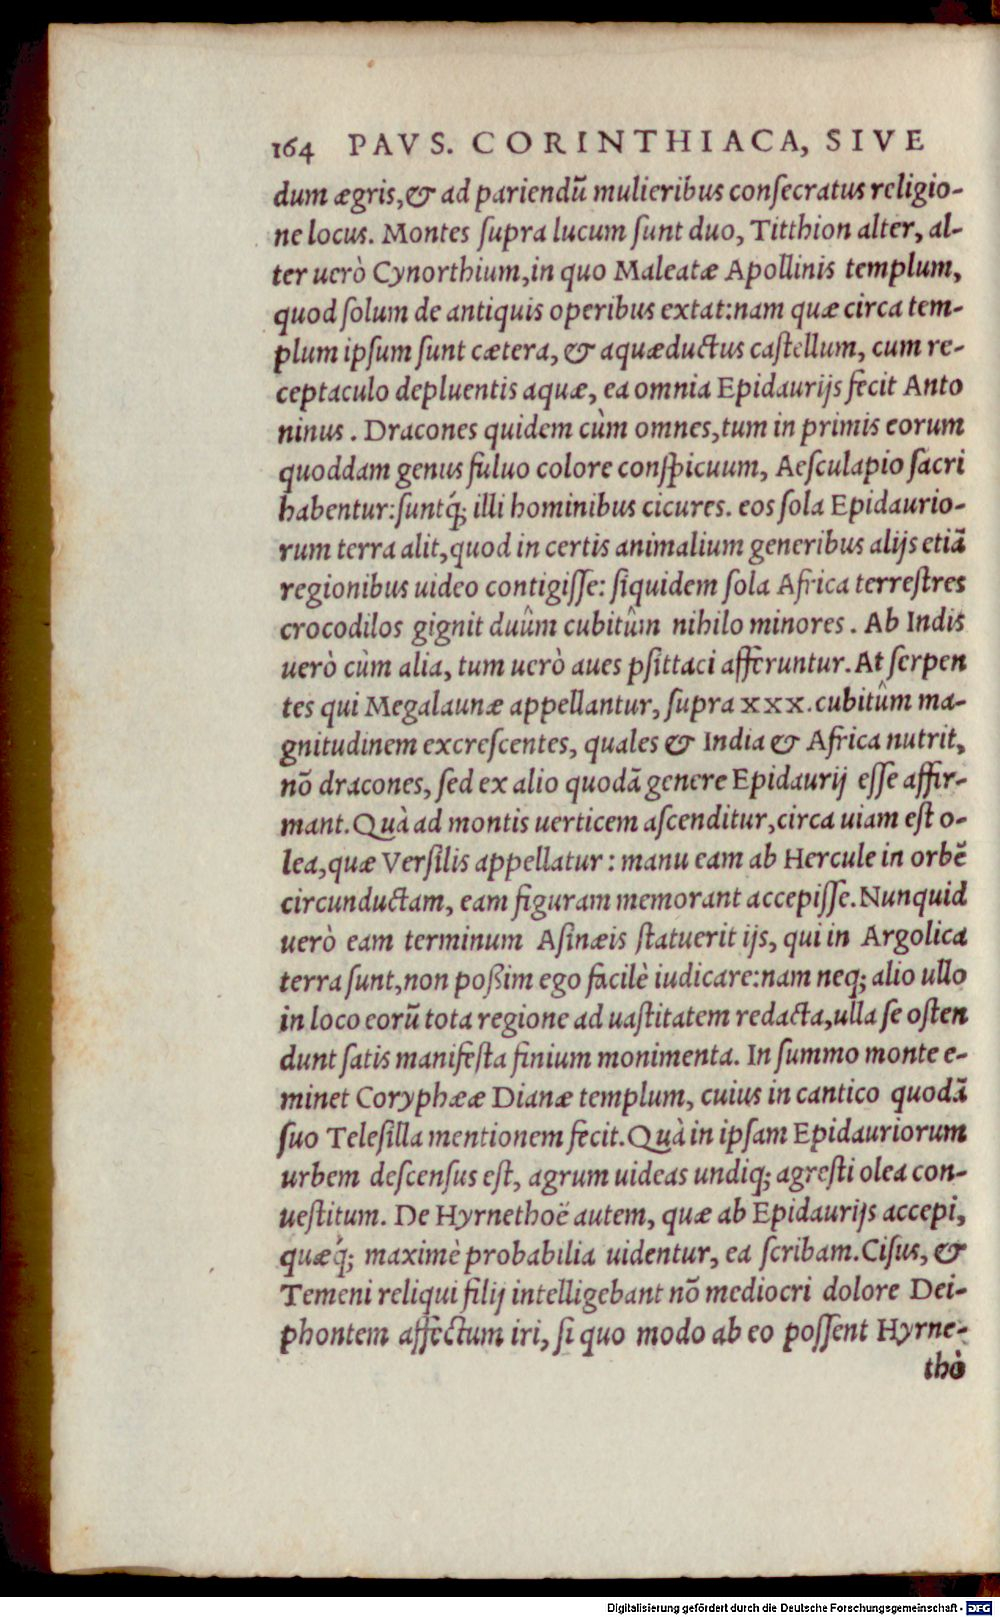 164 PAVS. CORINTHIACA, SIVE
dum ægris, & ad pariendũ mulieribus conſecratus religio-
ne locus. Montes ſupra lucum ſunt duo, Titthion alter, al-
ter uerò Cynorthium, in quo Maleatæ Apollinis templum,
quod ſolum de antiquis operibus extat: nam quæ circa tem-
plum ipſum ſunt cætera, & aquæductus caſtellum, cum re-
ceptaculo depluentis aquæ, ea omnia Epidaurijs fecit Anto
ninus. Dracones quidem cùm omnes, tum in primis eorum
quoddam genus fuluo colore conſpicuum, Aeſculapio ſacri
habentur: ſuntq́; illi hominibus cicures. eos ſola Epidaurio-
rum terra alit, quod in certis animalium generibus alijs etiã
regionibus uideo contigiſſe: ſiquidem ſola Africa terreſtres
crocodilos gignit duûm cubitûm nihilo minores. Ab Indis
uerò cùm alia, tum uerò aues pſittaci afferuntur. At ſerpen
tes qui Megalaunæ appellantur, ſupra xxx. cubitûm ma-
gnitudinem excreſcentes, quales & India & Africa nutrit,
nõ dracones, ſed ex alio quodã genere Epidaurij eſſe affir-
mant. Quà ad montis uerticem aſcenditur, circa uiam eſt o-
lea, quæ Verſilis appellatur: manu eam ab Hercule in orbẽ
circunductam, eam figuram memorant accepiſſe. Nunquid
uerò eam terminum Aſinæis ſtatuerit ijs, qui in Argolica
terra ſunt, non poßim ego facilè iudicare: nam neq; alio ullo
in loco eorũ tota regione ad uaſtitatem redacta, ulla ſe oſten
dunt ſatis manifeſta finium monimenta. In ſummo monte e-
minet Coryphææ Dianæ templum, cuius in cantico quodã
ſuo Teleſilla mentionem fecit. Quà in ipſam Epidauriorum
urbem deſcenſus eſt, agrum uideas undiq; agreſti olea con-
ueſtitum. De Hyrnethoë autem, quæ ab Epidaurijs accepi,
quæq́; maximè probabilia uidentur, ea ſcribam. Ciſus, &
Temeni reliqui filij intelligebant nõ mediocri dolore Dei-
phontem affectum iri, ſi quo modo ab eo poſſent Hyrne-
thò
Digitalisierung gefördert durch die Deutsche Forschungsgemeinschaft - DFG